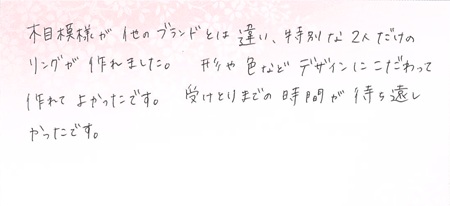 木目模様が他のブランドとは違い、特別な2人だけの
リングが作れました。 形や色などデザインにこだわって
作れてよかったです。 受けとりまでの時間が待ち遠し
かったです。